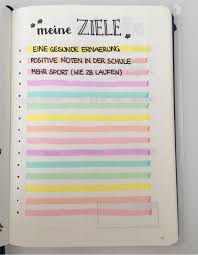 meine ZIELE
EINE GESUNDE ERNAERUNG
POSITIVE NOTEN IN DER SCHULE
MEHR SPORT (WIE ZB LAUFEN)